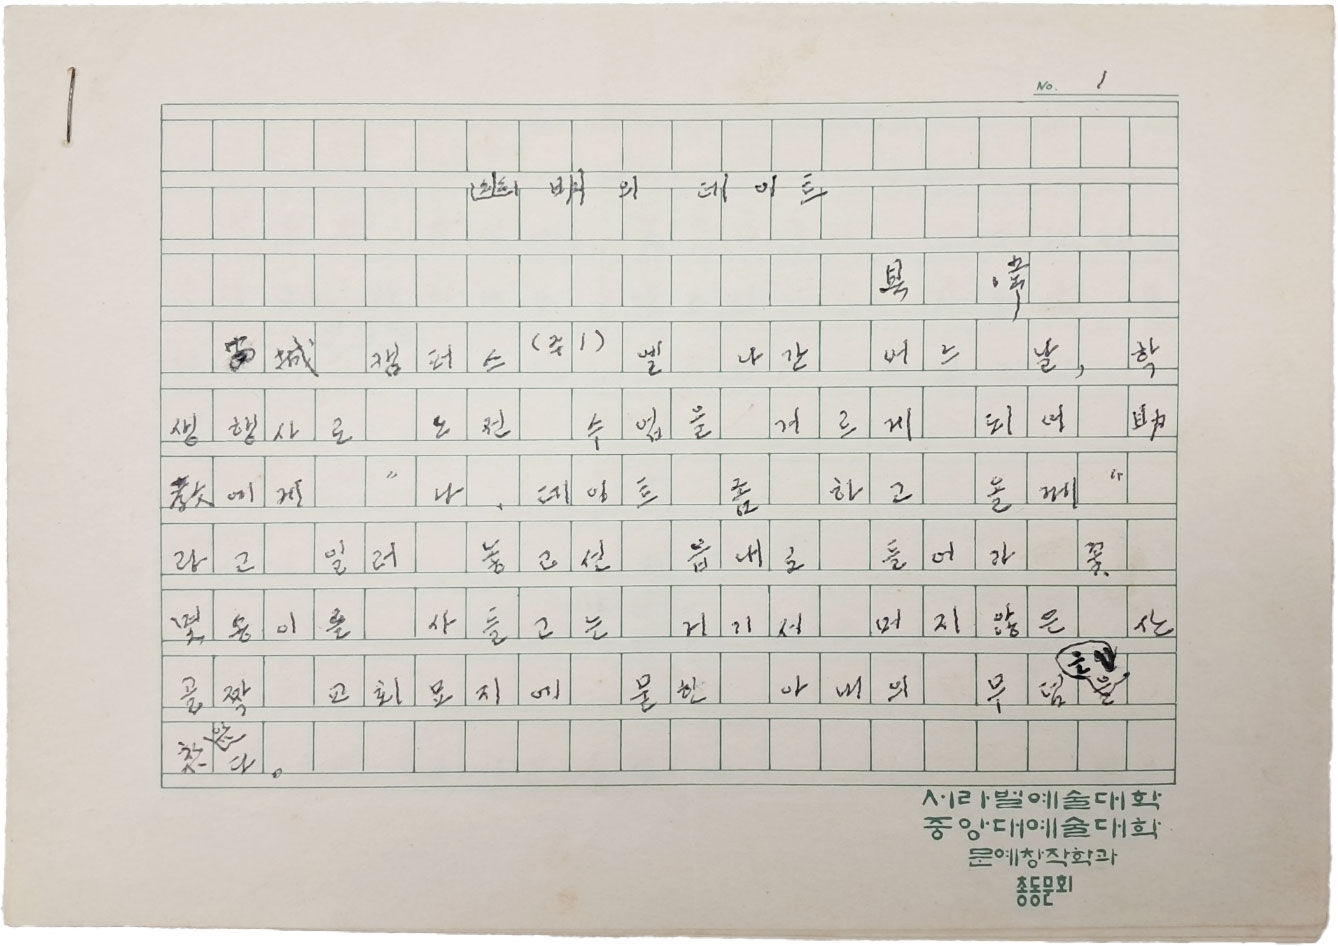 No. 1
의 데이트
城 캠퍼스 (주1) 엘 나간 어느 날, 학
생행사로 오전 수업을 거르게 되어
敎에게 “나, 데이트 좀 하고 올께”
라고 일러 놓고선 읍내로 들어가 꽃
몇 송이를 사들고는 거기서 머지않은 산
골짝 교회묘지에 묻힌 아내의 무덤을
찾았다.
서라벌예술대학
중앙대예술대학
문예창작학과
총동문회